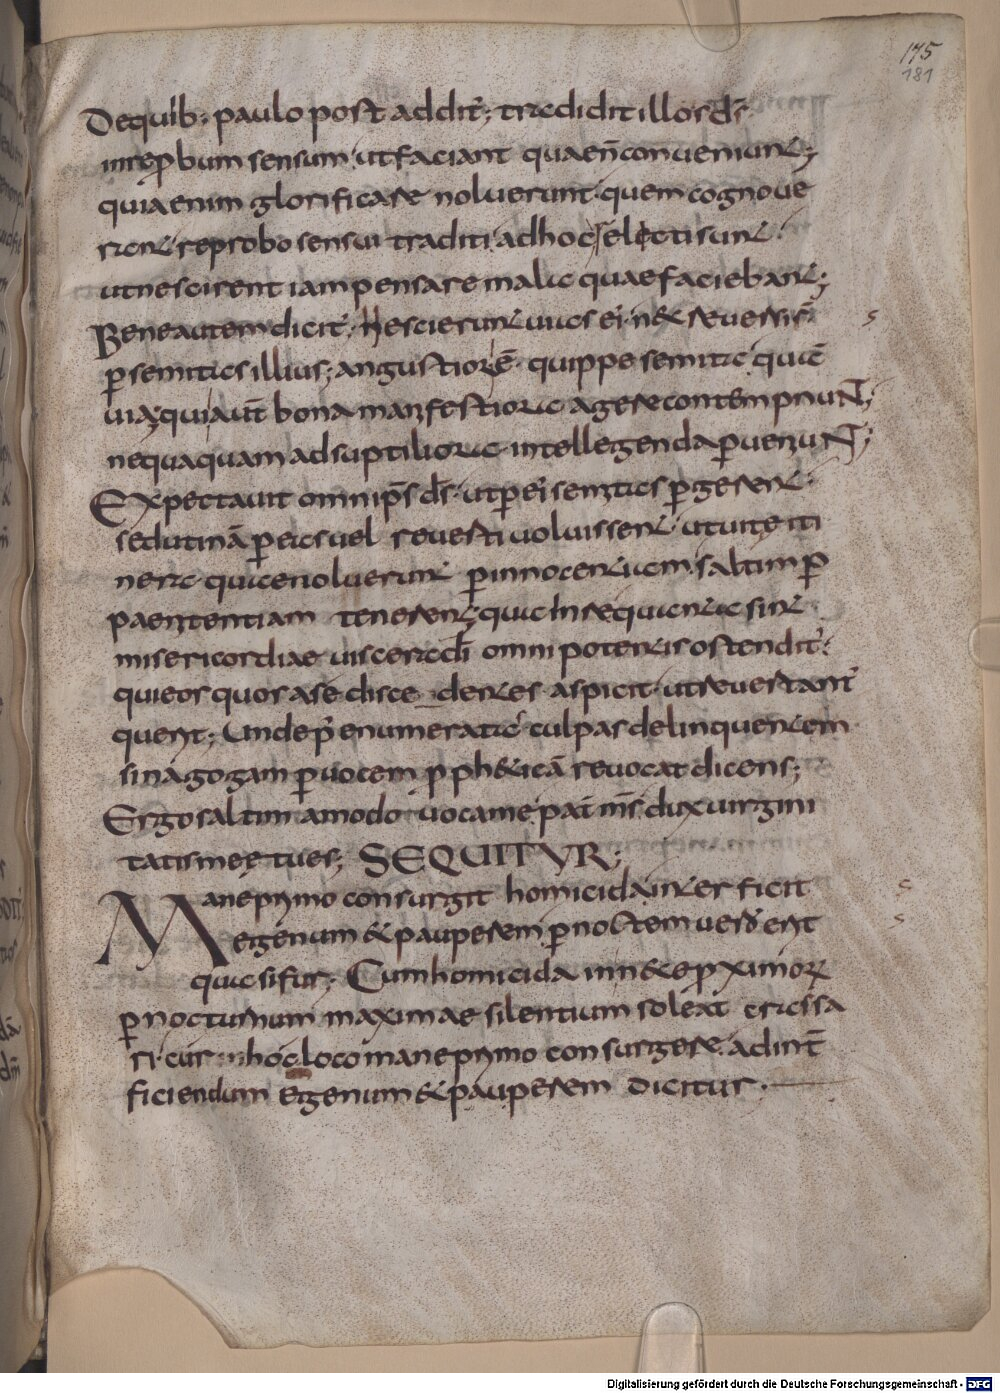 175
181
Dequib; paulo post addit; tradidit illos d̄s
inrepbum sensum ut faciant quae n̄ conueniunt;
quia enim glorificare noluerunt quem cognoue
runt reprobo sensui traditi ad hoc relicti sunt
ut nescirent iam pensare mala quae faciebant;
Bene autem dicit; Nescierunt uias ei; n& reuersi s̄
p semitas illius; angustior ē quippe semita quā
uia; qui aut̄ bona manifestiora agere contempnuNT;
nequaquam ad suptiliora intellegenda pueniuNT;
Expectauit omnip̄s d̄s ut p ei semitas pgerent
sed utinā p eas uel reuerti uoluissent ut uitę iti
nera quae noluerunt p innocentiam saltim p
paenitentiam tenerent; qua in re quanta sint
misericordiae uiscera d̄i omnipotentis ostendit;
qui eos quos a se discedentes aspicit ut reuertant̄
querit; Unde p̄ enumeratas culpas delinquentem
sinagogam p uocem pph&icā reuocat dicens;
Ergo saltim amodo uoca me pat̄ m̄s dux uirgini
tatis meę tu es; SEQUITUR;
Mane primo consurgit homicida interficit
egenum & pauperem p noctem uero erit
quasi fur; Cum homicida in n&e pximor
p nocturnum maxime silentium soleat crassa
ri cur in hoc loco mane primo consurgere ad int̄
ficiendum egenum & pauperem dicitur.
Digitalisierung gefördert durch die Deutsche Forschungsgemeinschaft - DFG